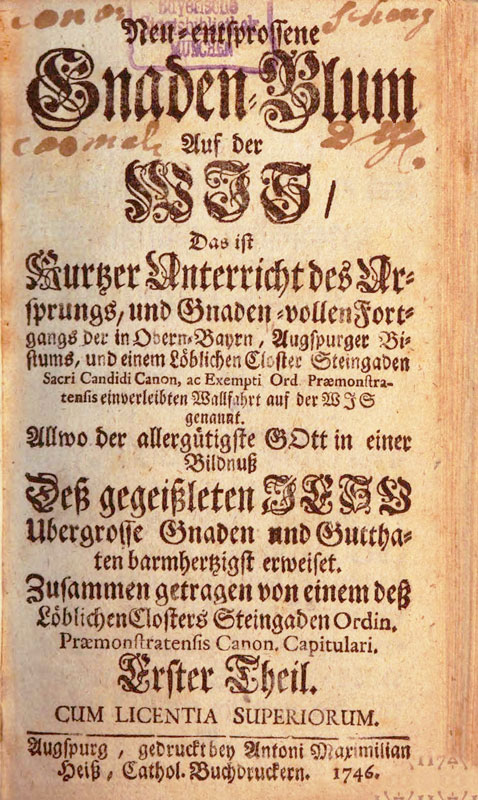 Neu-entsprossene
Bayerische
Staatsbibliothek
MÜNCHEN
Gnaden-Blum
Auf der
WJS /
Das ist
Kurtzer Unterricht des Ur-
sprungs, und Gnaden-vollen Fort-
gangs der in Obern-Bayrn, Augspurger Bi-
stums, und einem Löblichen Closter Steingaden
Sacri Candidi Canon, ac Exempti Ord Præmonstra-
tensis einverleibten Wallfahrt auf der WJS
genannt.
Allwo der allergütigste GOtt in einer
Bildnuß
Deß gegeißleten JESU
Ubergrosse Gnaden und Guttha-
ten barmhertzigst erweiset.
Zusammen getragen von einem deß
Löblichen Closters Steingaden Ordin.
Præmonstratensis Canon. Capitulari.
Erster Theil.
CUM LICENTIA SUPERIORUM.
Augspurg, gedruckt bey Antoni Maximilian
Heiß, Cathol. Buchdruckern. 1746.